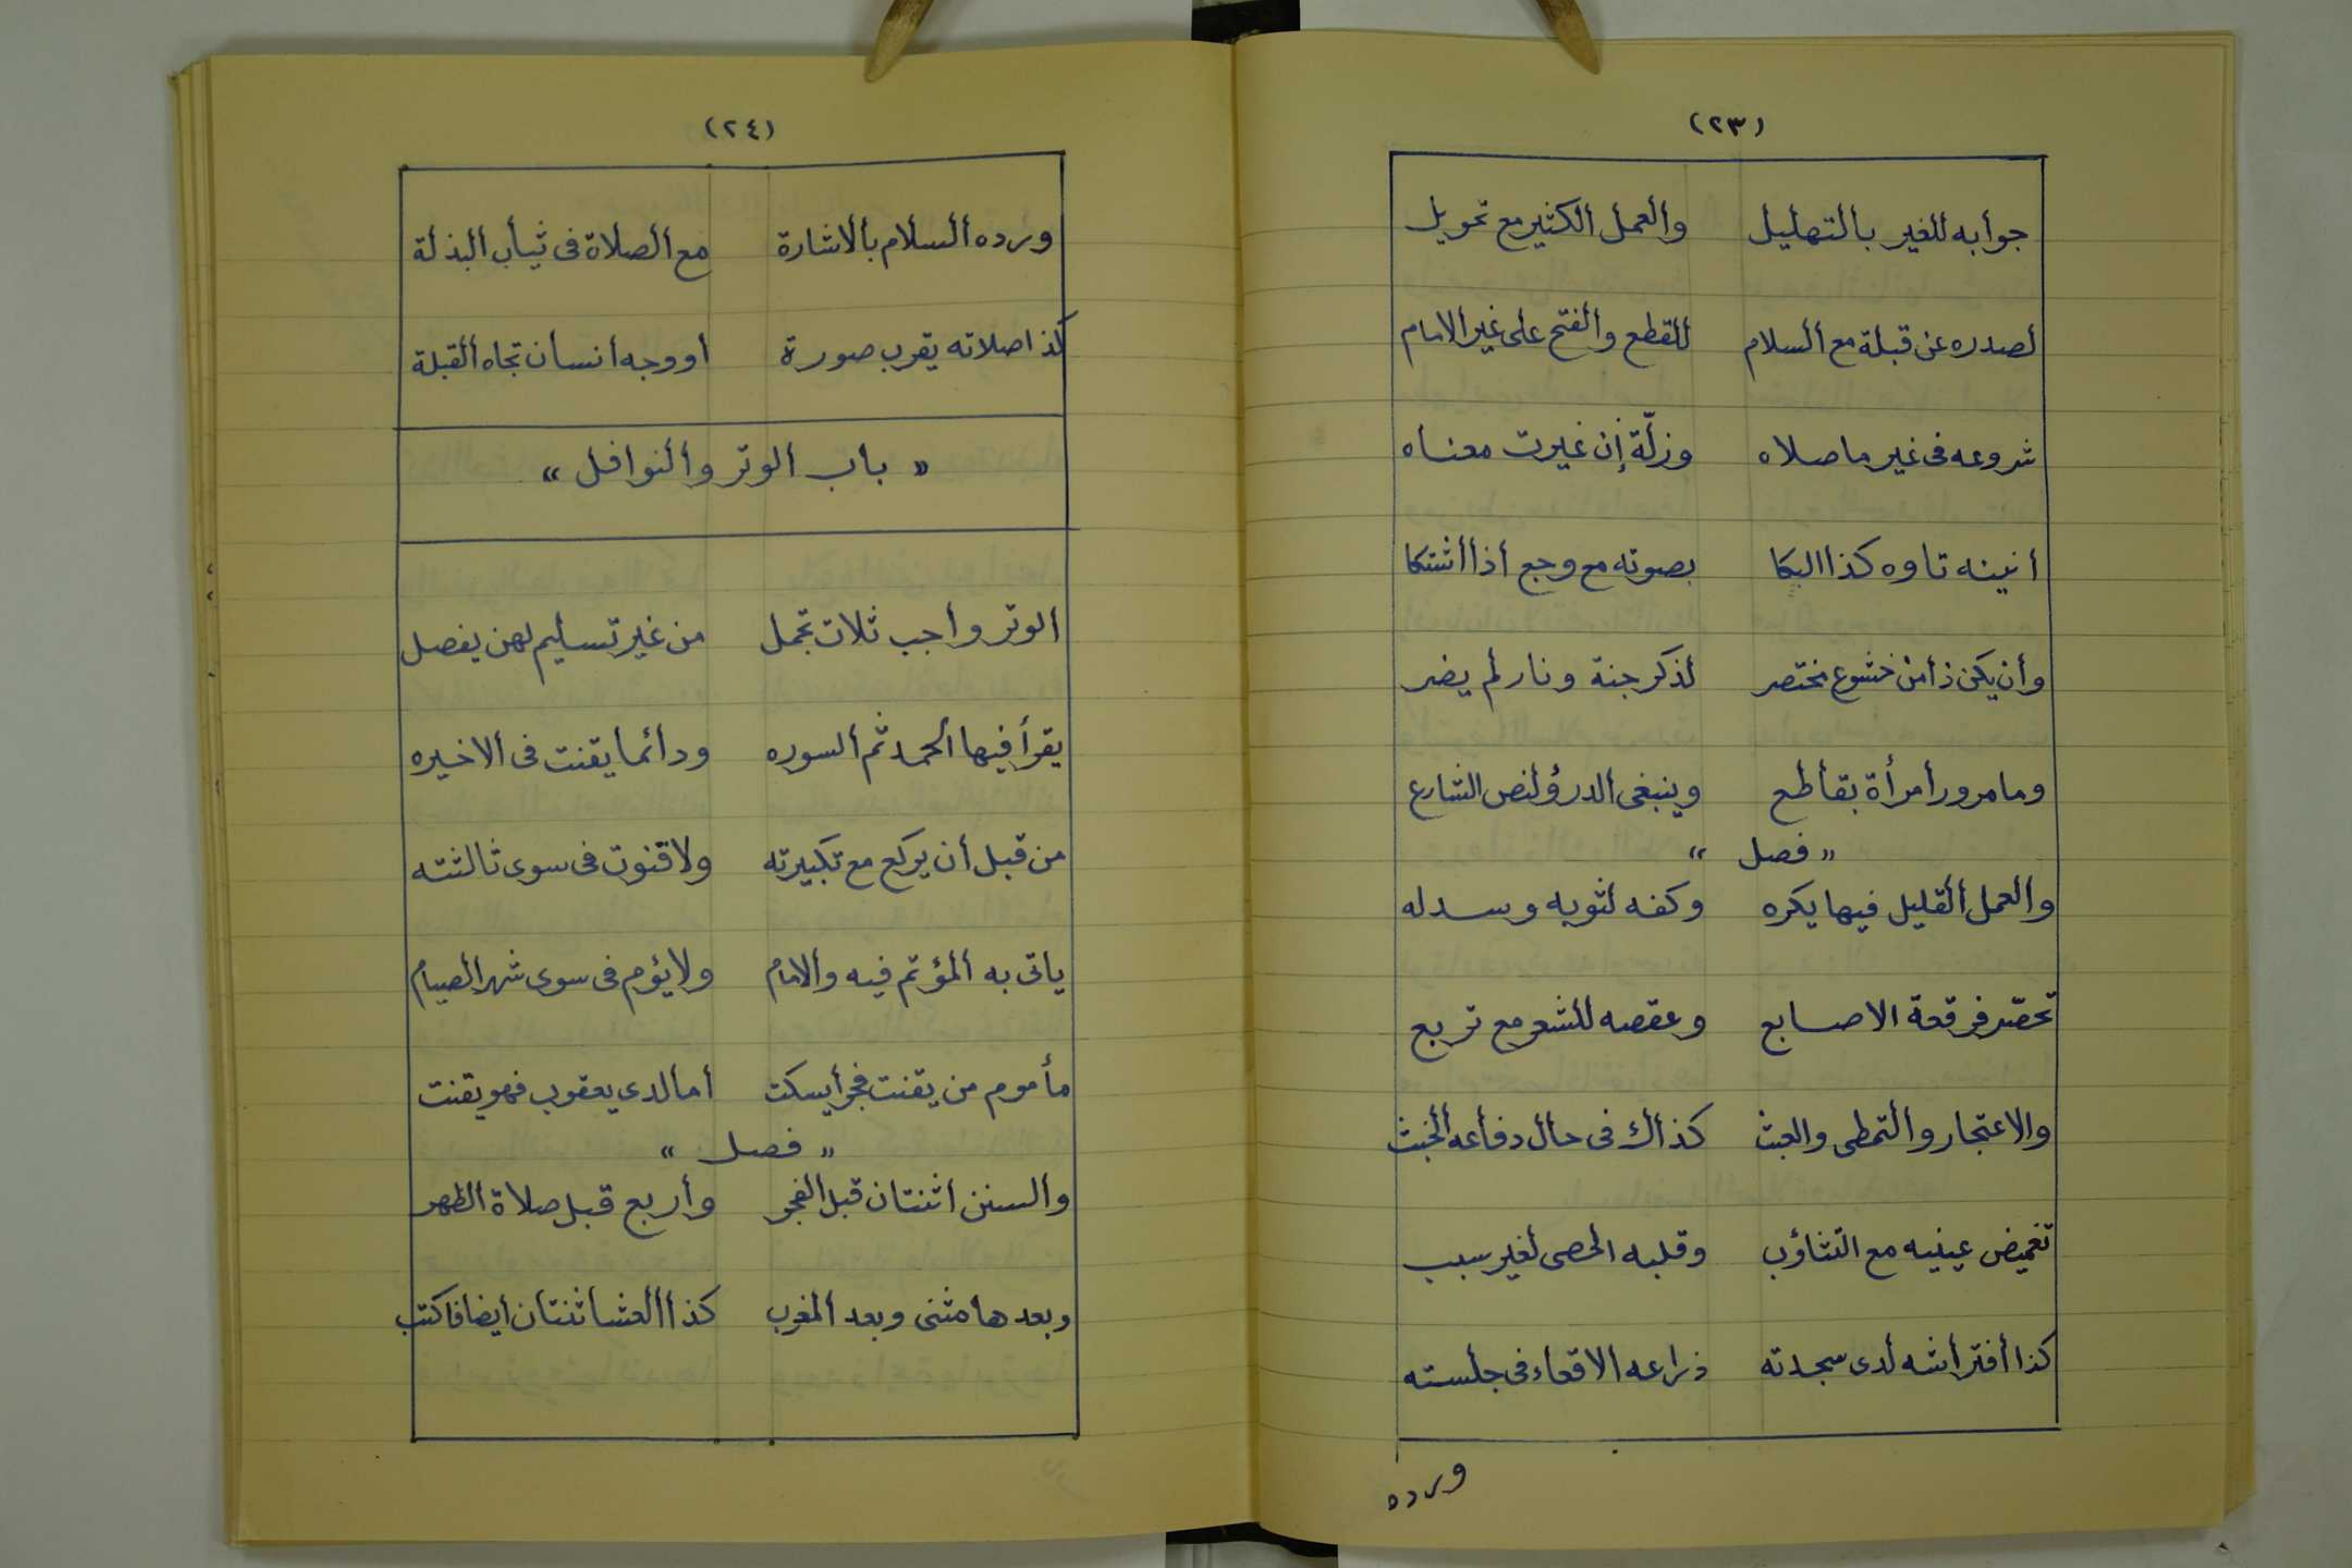 (٢٣)
جوابه للغير بالتهليل والعمل الكثير مع تحويل
لصدره عن قبلة مع السلام للقطع والفتح على غير الامام
شروعه فى غير ما صلاه وزلّة إن غيرت معناه
أنينه تاوه كذا البكا بصوته مع وجع أذا أشتكا
وأن يكن ذا من خشوع مختصر لذكر جنة ونار لم يضر
وما مرور أمرأة بقاطع وينبغى الدرؤ لنص الشارع
« فصل »
والعمل القليل فيها يكره وكفه لثوبه وسدله
تحصّر فرقعة الاصابع وعقصه للشعر مع تربع
والاعتجار والتمطى والعبث كذاك فى حال دفاعه الخبث
تغميض عينيه مع التثاؤب وقلبه الحصى لغير سبب
كذا أفتراشه لدى سجدته ذراعه الاقعاء فى جلسته
ورده
(٢٤)
ورده السلام بالاشارة مع الصلاة فى ثياب البذلة
كذا صلاته يقرب صورة او وجه انسان تجاه القبلة
« باب الوتر والنوافل »
الوتر واجب ثلاث تجمل من غير تسليم لهن يفصل
يقرأ فيها الحمد ثم السوره ودائما يقنت فى الاخيره
من قبل أن يركع مع تكبيرته ولا قنوت فى سوى ثالثته
ياتى به المؤتم فيه والامام ولا يؤم فى سوى شهر الصيام
مأموم من يقنت فجر أيسكت أما لدى يعقوب فهو يقنت
« فصل »
والسنن اثنتان قبل الفجر وأربع قبل صلاة الظهر
وبعدها مثنى وبعد المغرب كذا العشا ثنتان أيضا فاكتب